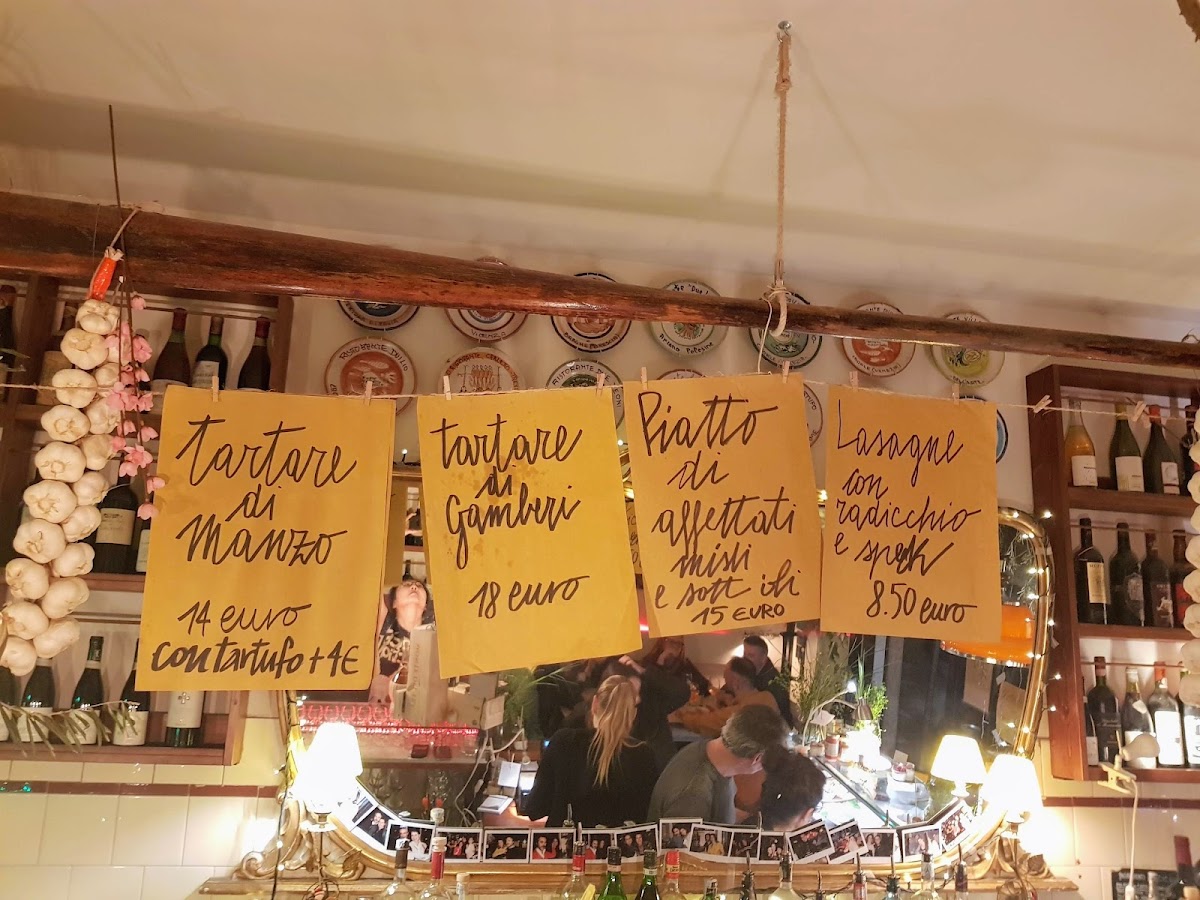 tartare
di
Manzo
14 euro
con tartufo + 4€
tartare
di
Gamberi
18 euro
Piatto
di
affettati
misti
e sott oli
15 EURO
Lasagne
con
radicchio
e speck
8.50 euro